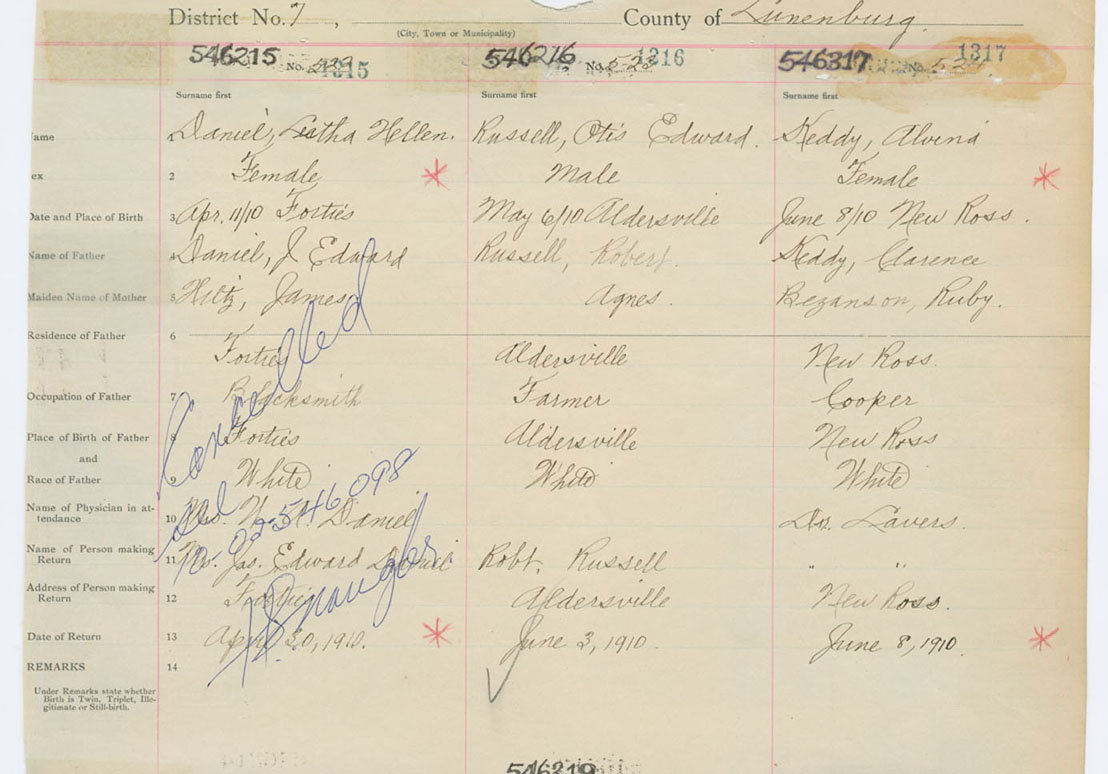 District No. 7, County of Lunenburg
(City, Town or Municipality)
546215 No. 1315 546216 No. 1316 546317 No. 1317
Surname first Surname first Surname first
ame 1 Daniel, Hellen. Russell, Otis Edward. Keddy, Alvina
ex 2 Female Male Female
Date and Place of Birth 3 Apr. 11/10 Forties May 6/10 Aldersville June 8/10 New Ross.
Name of Father 4 Daniel, J Edward Russell, Robert. Keddy, Clarence
Maiden Name of Mother 5 Hiltz, James Agnes. Bezanson, Ruby.
Residence of Father 6
Forties Aldersville New Ross.
Occupation of Father 7 Blacksmith Farmer Cooper
Place of Birth of Father 8 Forties Aldersville New Ross
and
Race of Father 9 White White White
Name of Physician in at-
tendance 10 Mrs. Daniel Dr. Lavers.
Name of Person making
Return 11 Jas. Edward Daniel Robt. Russell " "
Address of Person making
Return 12 Forties Aldersville New Ross.
Date of Return 13 April 30, 1910. June 3, 1910. June 8, 1910.
REMARKS 14
Under Remarks state whether
Birth is Twin, Triplet, Ille-
gitimate or Still-birth.
Cancelled
546098
546319